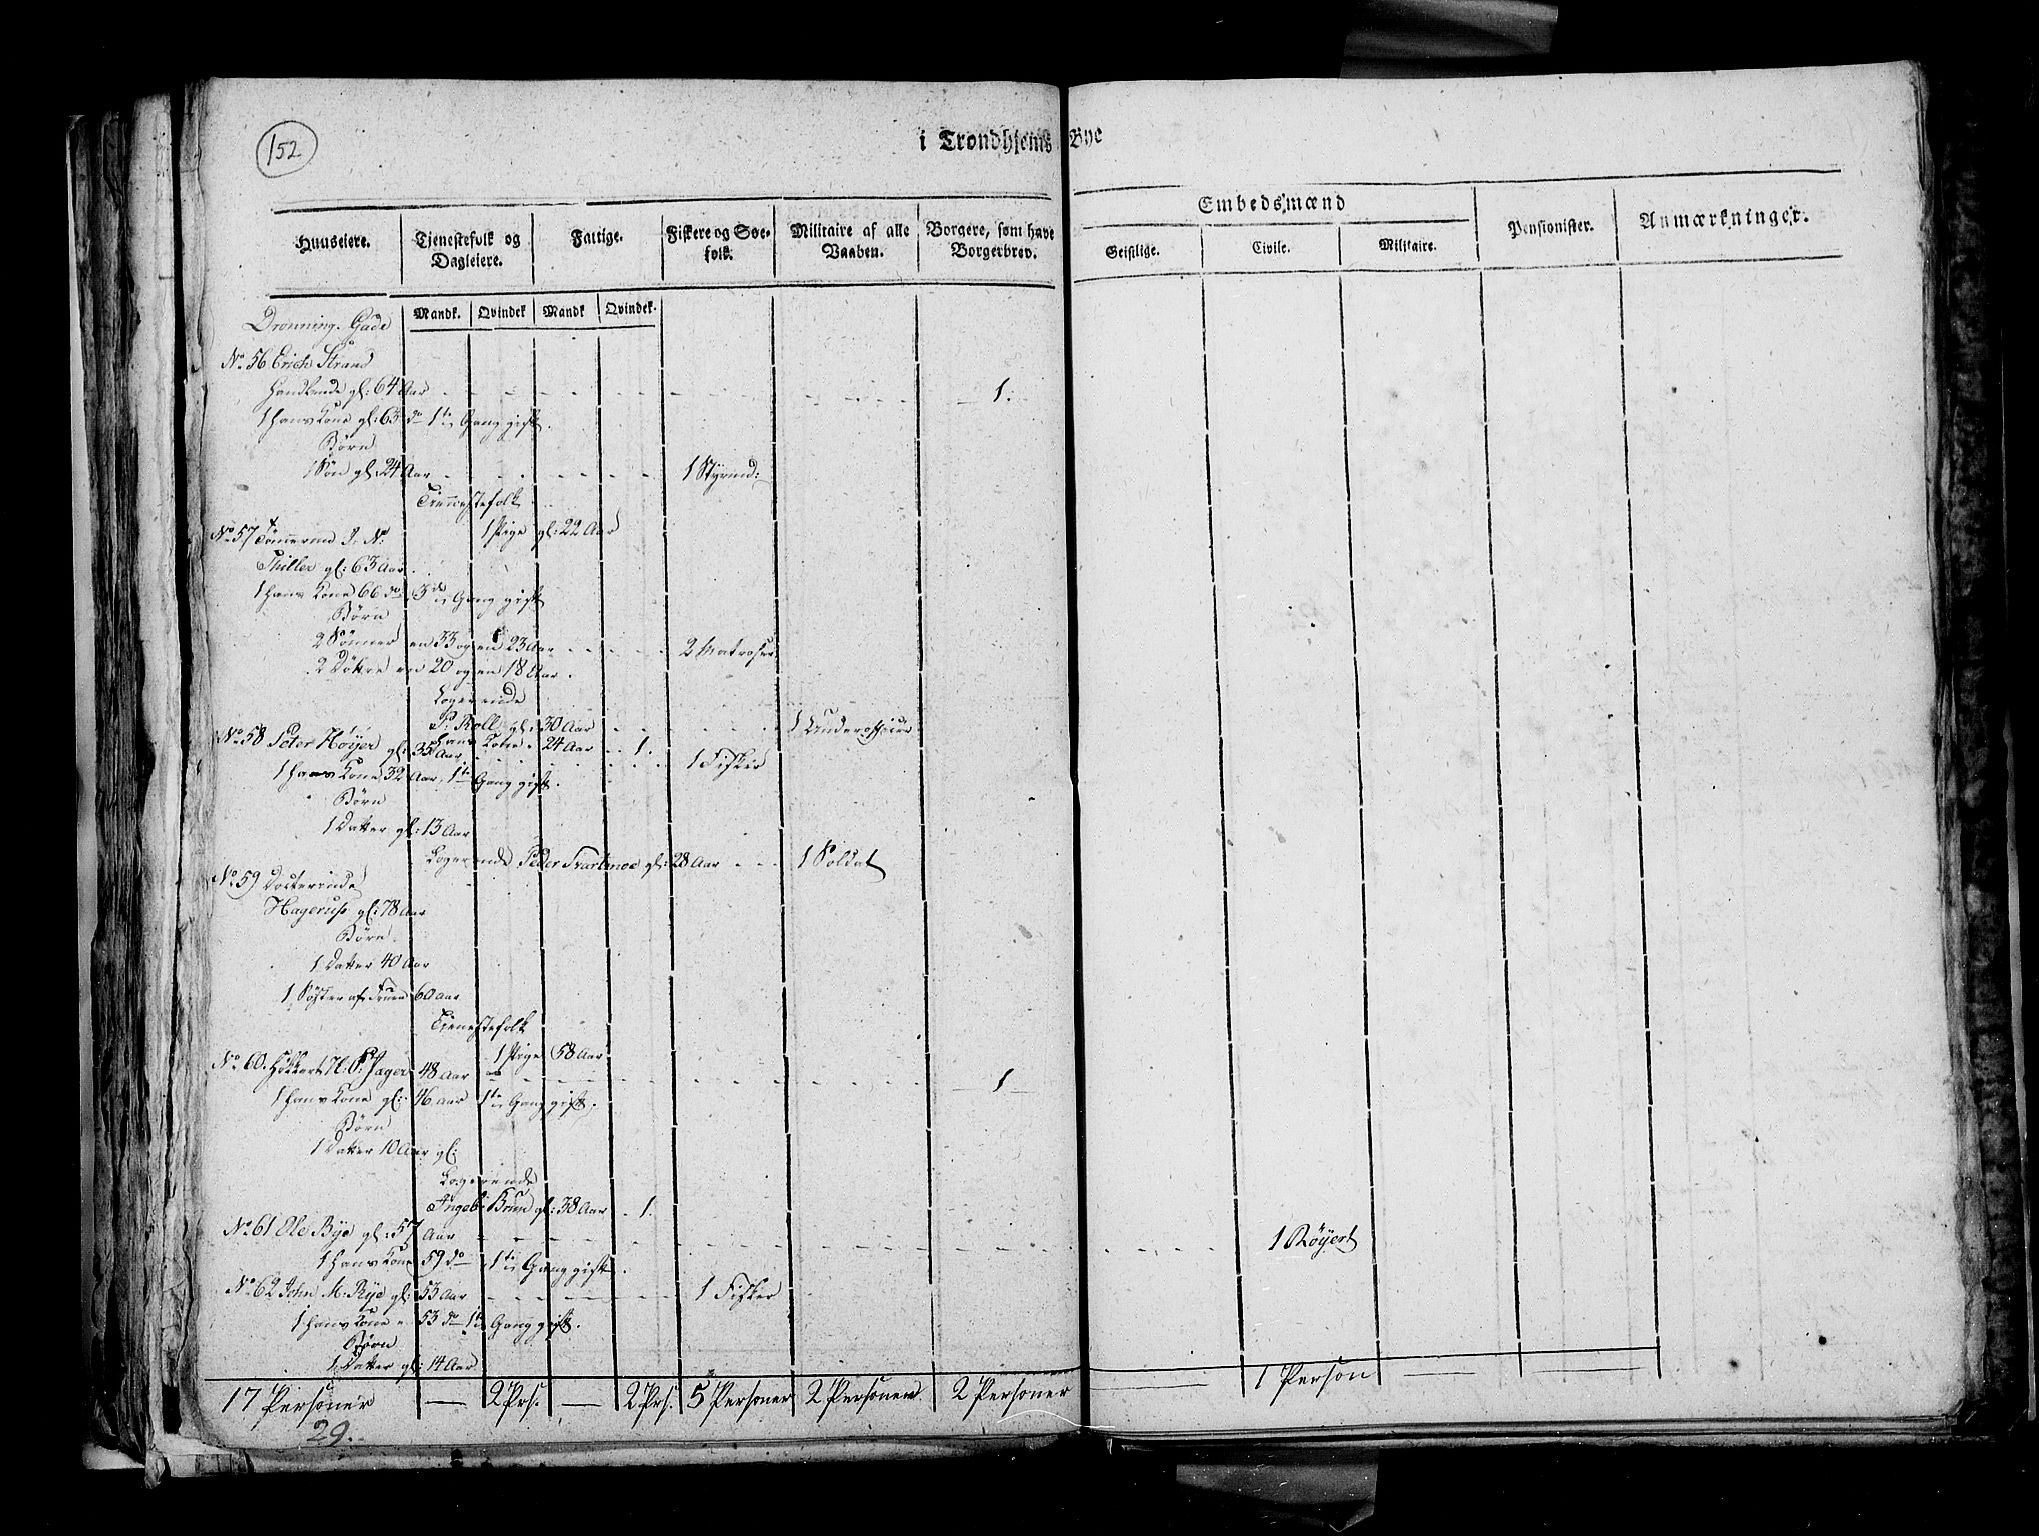 152
i Trondhjems Bye
Huuseiere.
Tjenestefolk og Dagleiere.
Fattige.
Fiskere og Søefolk.
Militaire af alle Vaaben.
Borgere, som have Borgerbrev.
Embedsmænd
Geistlige.
Civile.
Militaire.
Pensionister.
Anmærkninger.
Mandk. Qvindek Mandk Qvindek.
Dronning. Gade
No. 56 Erich Strand
Handlende gl: 64 Aar 1.
1 Hans Kone gl: 63 do 1te Gang gift.
Børn
1 Søn gl: 24 Aar 1 Styrmd:
Tiennestefolk
1 Pige gl: 22 Aar
No. 57 Tømermd J. N:
Thiller gl: 63 Aar.
1 Hans Kone 66 do 3de Gang gift
Børn
2 Sønner en 33 og en 23 Aar 2 Matroser
2 Døttre en 20 og en 18 Aar.
Logerende
P: Roll gl: 30 Aar 1 Underofficeer
Hans Kone 24 Aar 1.
No. 58 Peter Høyer gl: 35 Aar 1 Fisker
1 Hans Kone 32 Aar, 1te Gang gift.
Børn
1 Datter gl: 13 Aar
Logerende Peder Svartmoe gl: 28 Aar 1 Soldat
No. 59 Docterinde
Hagerup gl: 78 Aar
Børn.
1 Datter 40 Aar
1 Søster af Fruen 60 Aar
Tienestefolk
1 Pige 58 Aar
No. 60. N: P: Jager 48 Aar 1
1 Hans Kone gl: 46 Aar 1te Gang gift.
Børn
1 Datter 10 Aar gl:
Logerende
Ingeb: Bruun gl: 38 Aar 1.
No. 61 Ole Bye gl: 57 Aar 1 Røyert
1 Hans Kone 59 do 1te Gang gift.
No. 62 John M. Rye gl: 53 Aar 1 Fisker
1 Hans Kone 53 do 1te Gang gift.
Børn
1 Datter gl: 14 Aar
17 Personer — 2 Prs. — 2 Prs. 5 Personer 2 Personer 2 Personer — 1 Person — —
29.